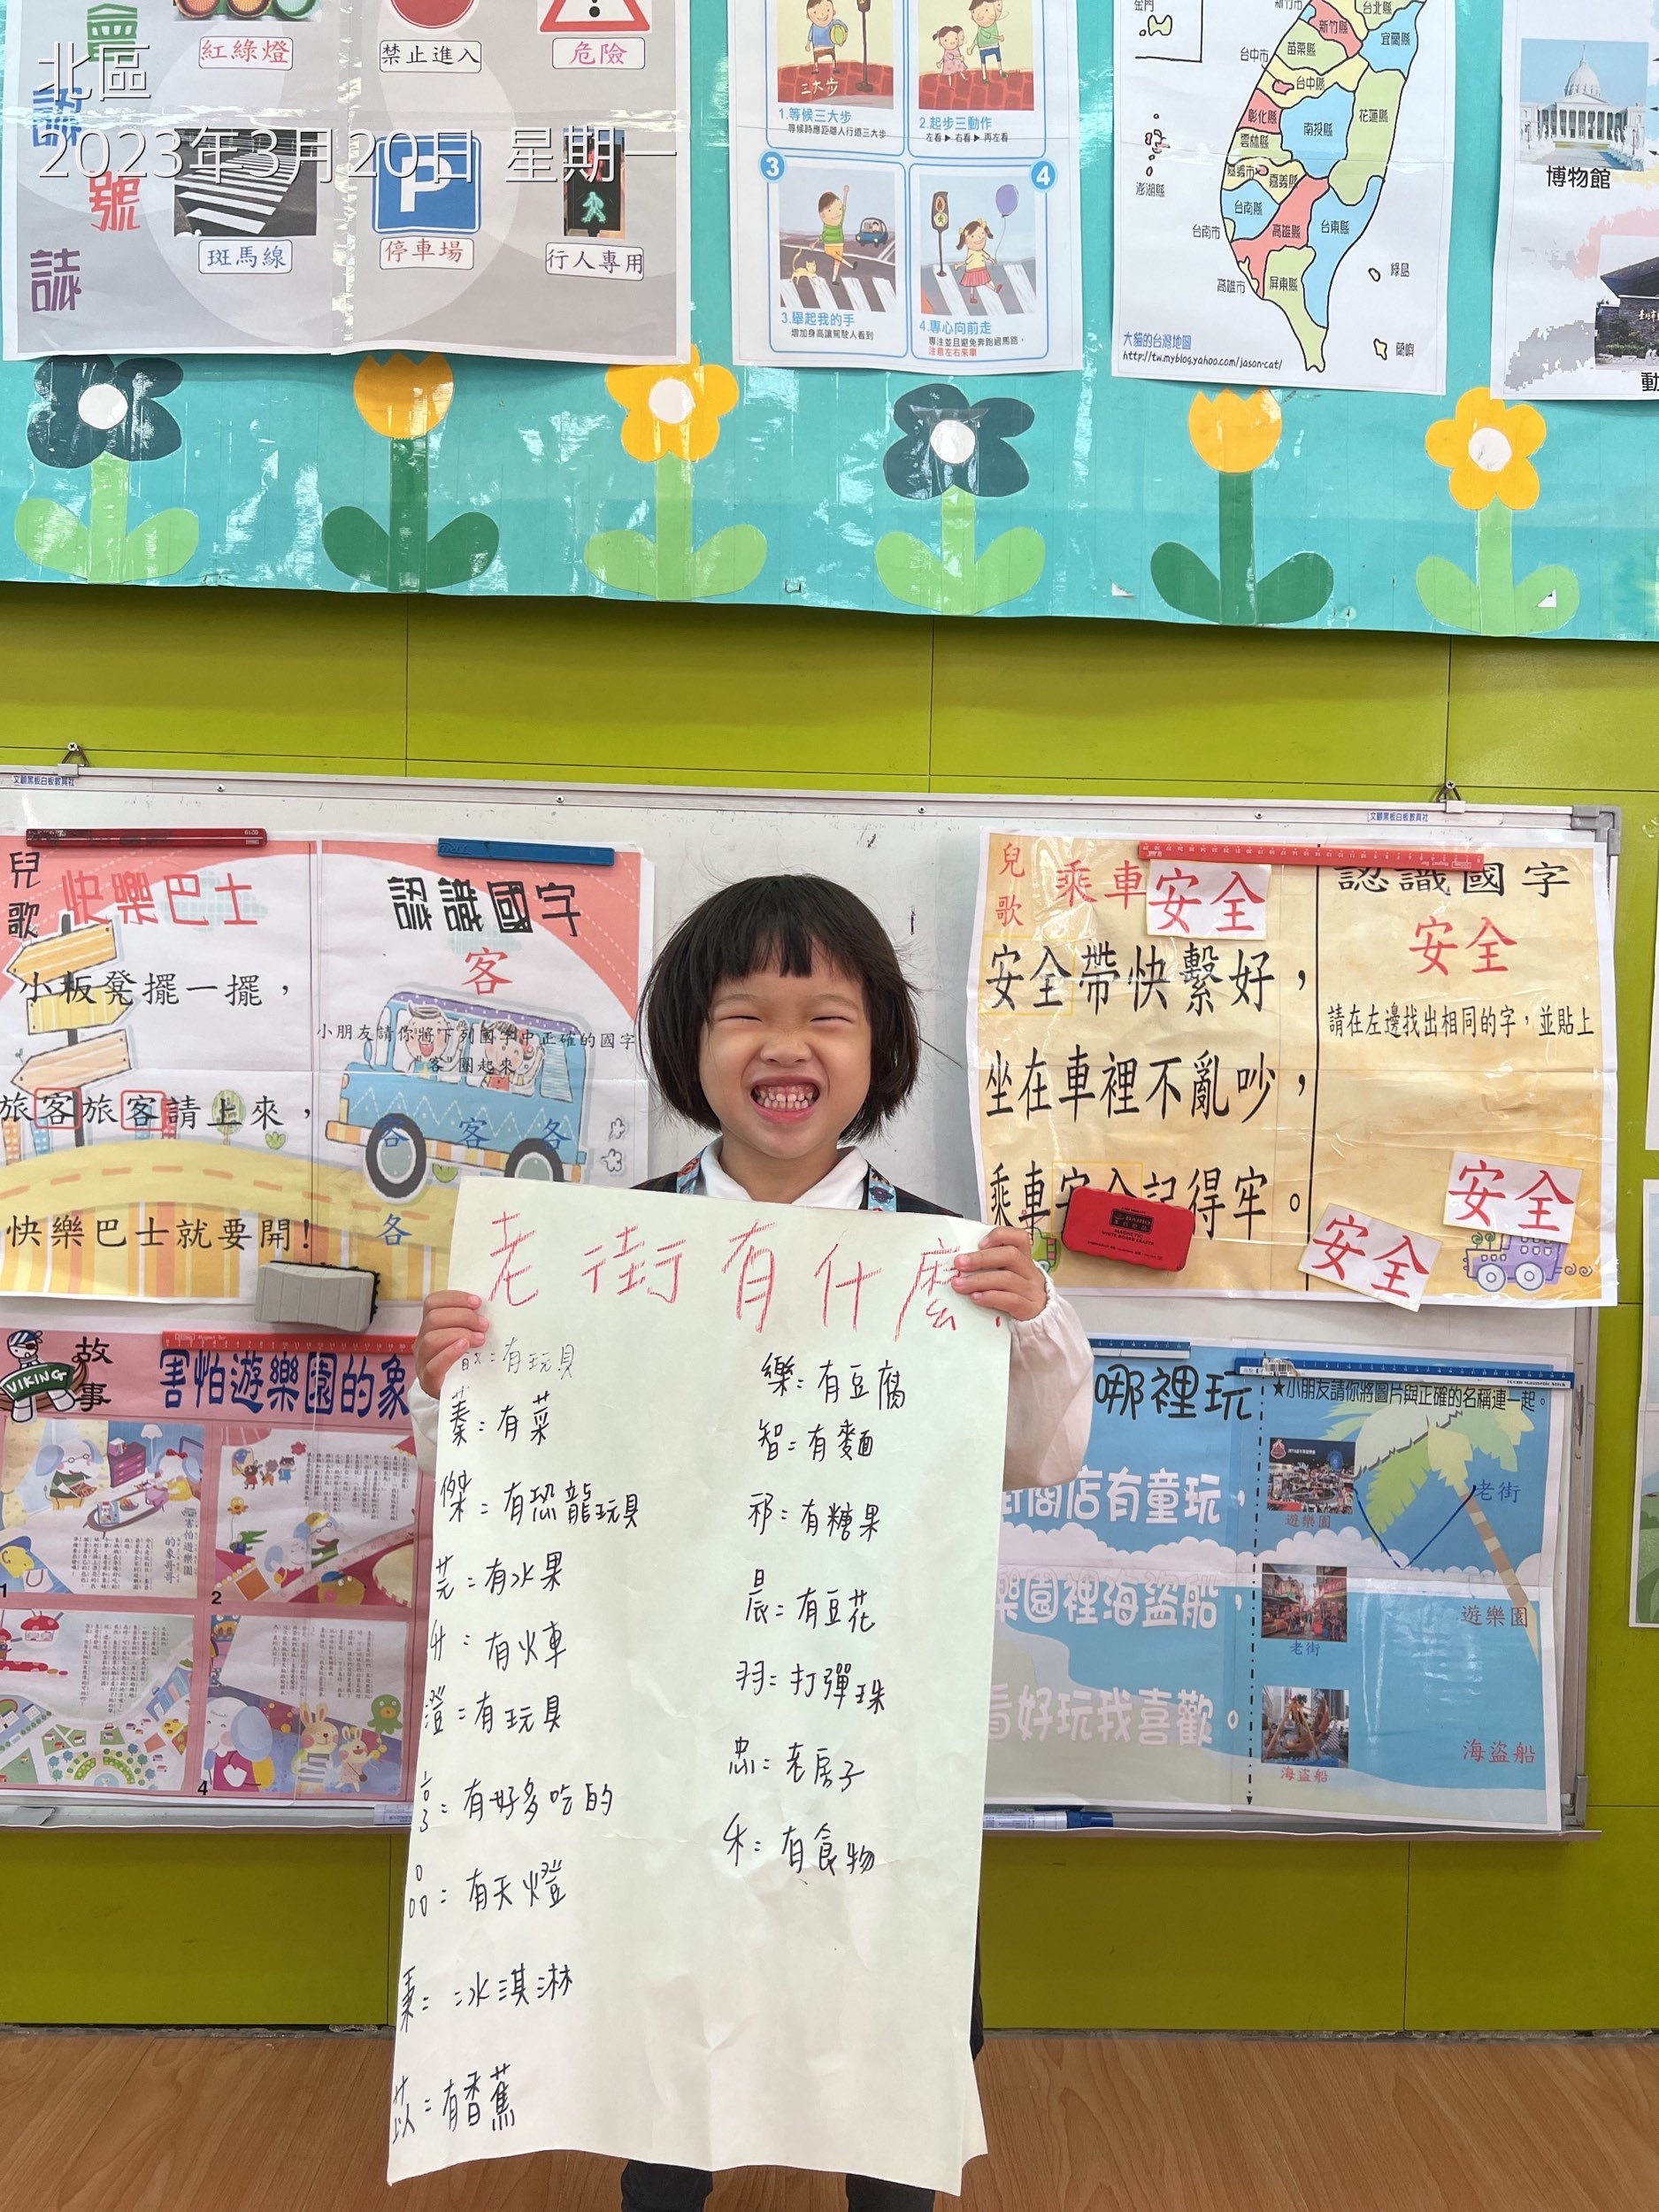 北區
2023年3月20日 星期一
會認號誌
紅綠燈
禁止進入
危險
斑馬線
停車場
行人專用
三大步
1.等候三大步
等候時應距離人行道三大步
2.起步三動作
左看▶右看▶再左看
3
4
3.舉起我的手
增加身高讓駕駛人看到
4.專心向前走
專注並且避免奔跑過馬路,
注意左右來車
金門
新竹市
新竹縣
台北縣
宜蘭縣
苗栗縣
台中市
台中縣
彰化縣
南投縣
花蓮縣
雲林縣
嘉義市
嘉義縣
澎湖縣
台南縣
台南市
高雄縣
台東縣
高雄市
屏東縣
綠島
蘭嶼
大貓的台灣地圖
http://tw.myblog.yahoo.com/jason-cat/
博物館
動
兒歌
巴士
小板凳擺一擺，
旅客旅客請上來，
快樂巴士就要開!
認識國字
客
小朋友請你將下列國字中正確的國字
"客"圈起來。
各 客 各
各
兒歌
乘車安全
安全帶快繫好，
坐在車裡不亂吵，
乘車安全記得牢。
認識國字
安全
請在左邊找出相同的字，並貼上
安全
安全
VIKING
故事
害怕遊樂園的象
害怕遊樂園
的象哥哥
1
2
4
哪裡玩
商店有童玩，
樂園裡海盜船，
看好玩我喜歡。
★小朋友請你將圖片與正確的名稱連一起。
遊樂園
老街
老街
遊樂園
海盜船
海盜船
老街有什麼?
=有玩具
蓁=有菜
傑=有恐龍玩具
芫=有水果
升=有火車
澄=有玩具
=有好多吃的
=有天燈
=冰淇淋
苡=有香蕉
樂=有豆腐
智=有麵
祁=有糖果
晨=有豆花
羽=打彈珠
忠=老房子
禾=有食物